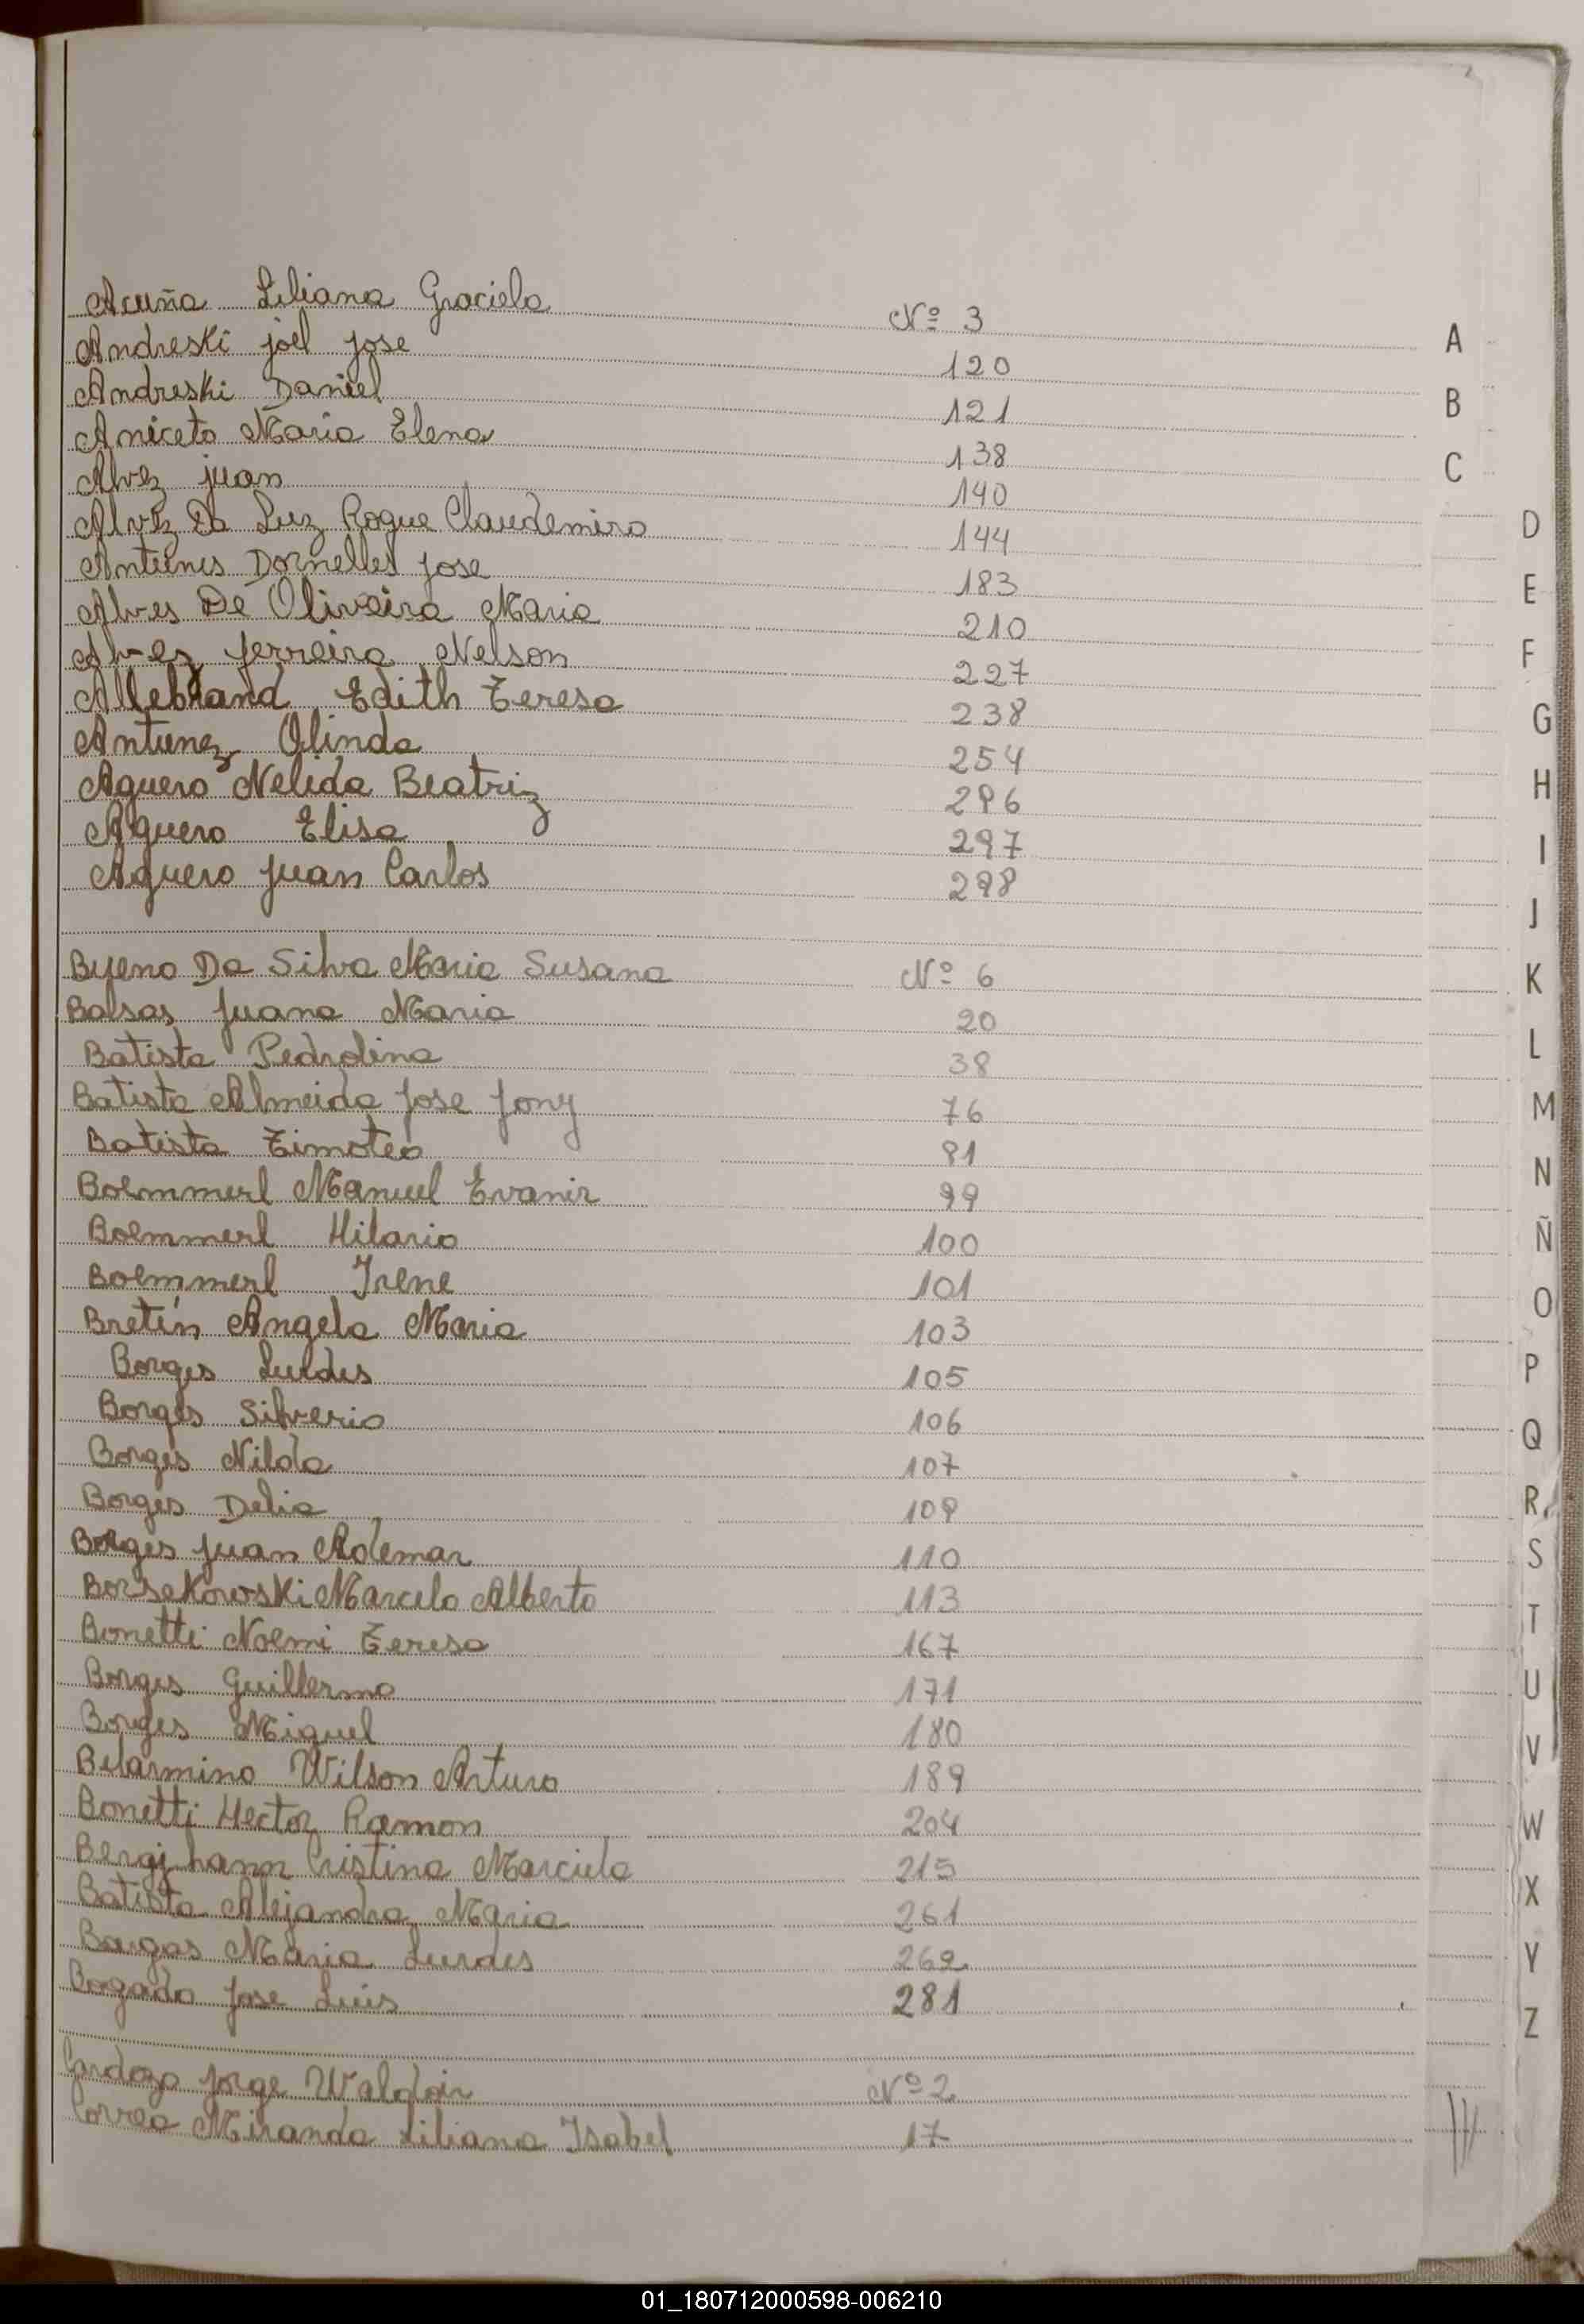 Acuña Liliana Graciela Nº 3
Andreski joel jose 120
Andreski Daniel 121
Aniceto Maria Elena 138
Alvez juan 140
Alvez Da Luz Roque Claudemiro 144
Antunes Dornelles jose 183
Alves De Oliveira Maria 210
Alvez ferreira Nelson 227
Allebrand Edith Teresa 238
Antunez Olinda 254
Aguero Nelida Beatriz 296
Aguero Elisa 297
Aguero Juan Carlos 298
Bueno Da Silva Maria Susana Nº 6
Balsas Juana Maria 20
Batista Pedrolina 38
Batista Almeida Jose Jony 76
Batista Timoteo 81
Boemmerl Manuel Evanir 99
Boemmerl Hilario 100
Boemmerl Irene 101
Bretín Angela Maria 103
Borges Lurdes 105
Borges Silverio 106
Borges Nilda 107
Borges Delia 109
Borges Juan Ademar 110
Borsekowski Marcelo Alberto 113
Bonetti Noemi Teresa 167
Borges Guillermo 171
Borges Miguel 180
Belarmino Wilson Arturo 189
Bonetti Hector Ramon 204
Cristina Marciela 215
Batista Alejandra Maria 261
Maria Lurdes 262
Bogado Jose Luis 281
Cardozo Jorge Waldoir Nº 2
Correa Miranda Liliana Isabel 17
A
B
C
D
E
F
G
H
I
J
K
L
M
N
Ñ
O
P
Q
R
S
T
U
V
W
X
Y
Z
01_180712000598-006210